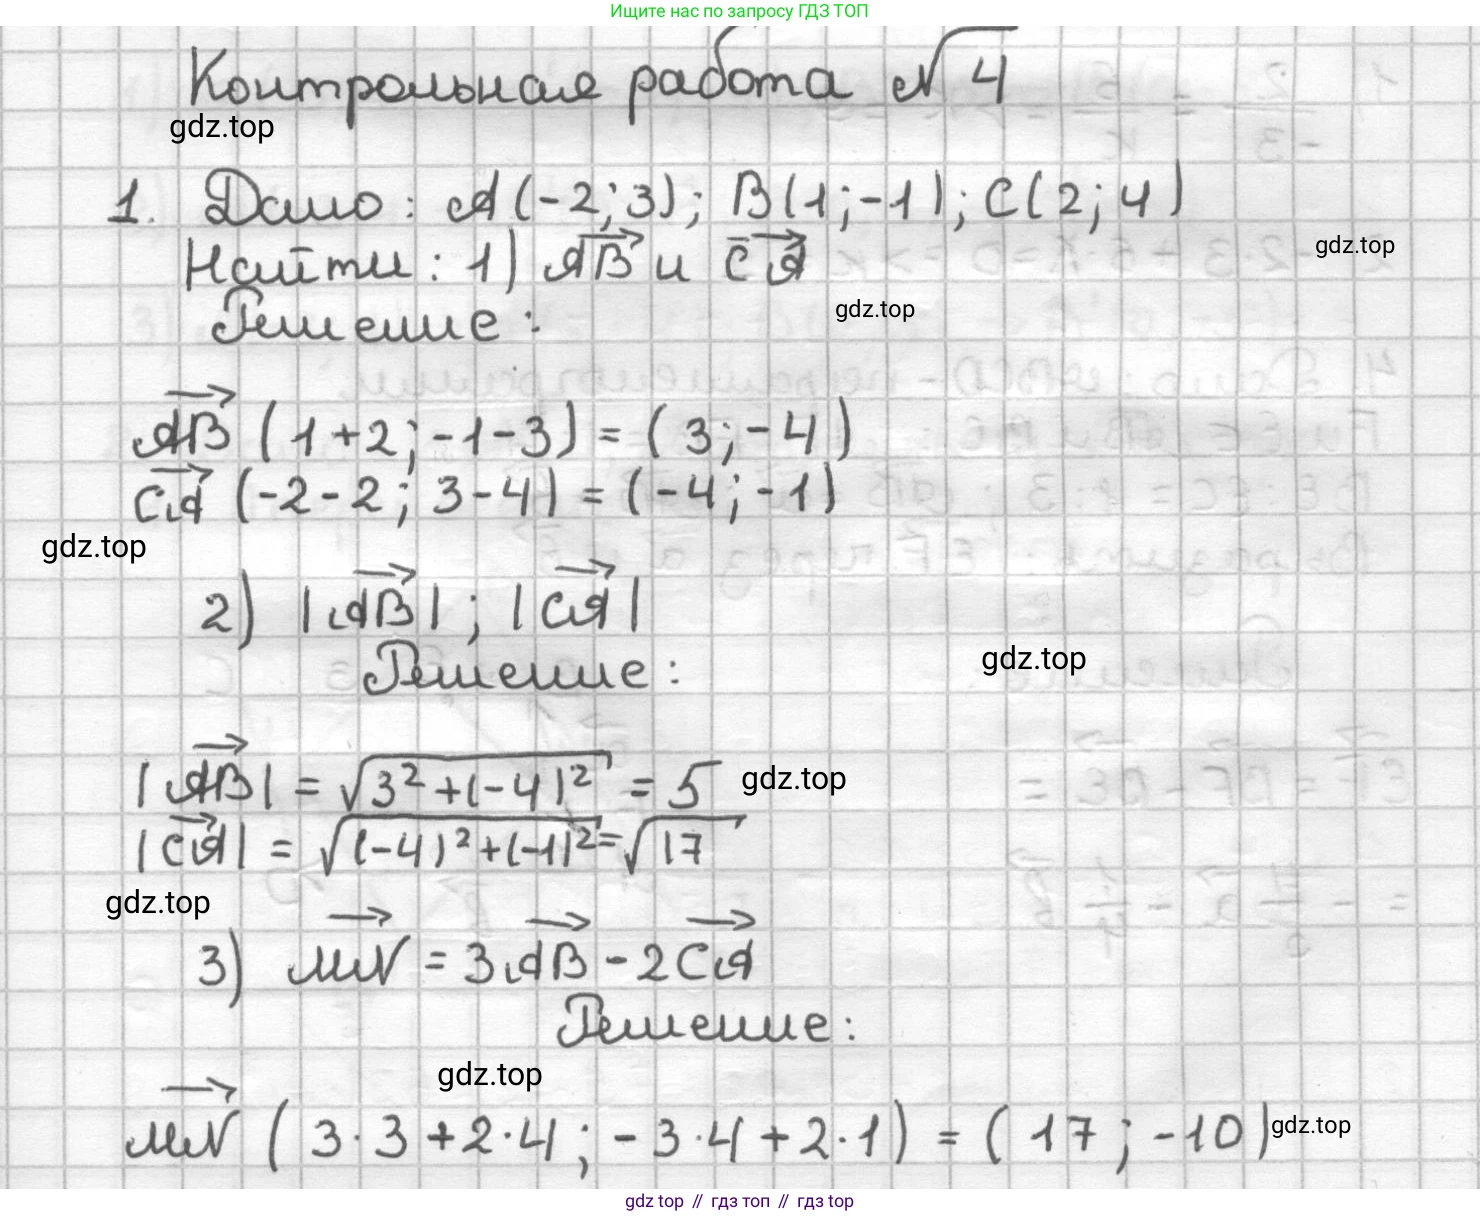 Ищите нас по запросу ГДЗ ТОП
Контрольная работа №4
gdz.top
1. Дано: A(-2;3); B(1;-1); C(2;4)
Найти: 1) AB→ и CA→
gdz.top
Решение:
gdz.top
AB→ (1+2; -1-3) = (3; -4)
CA→ (-2-2; 3-4) = (-4; -1)
gdz.top
2) |AB→|; |CA→|
Решение:
gdz.top
|AB→| = √(3²+(-4)²) = 5
gdz.top
|CA→| = √((-4)²+(-1)²) = √17
gdz.top
3) MN→ = 3AB→ - 2CA→
Решение:
gdz.top
MN→ (3·3+2·4; -3·4+2·1) = (17; -10)
gdz.top
gdz top // гдз топ // гдз top